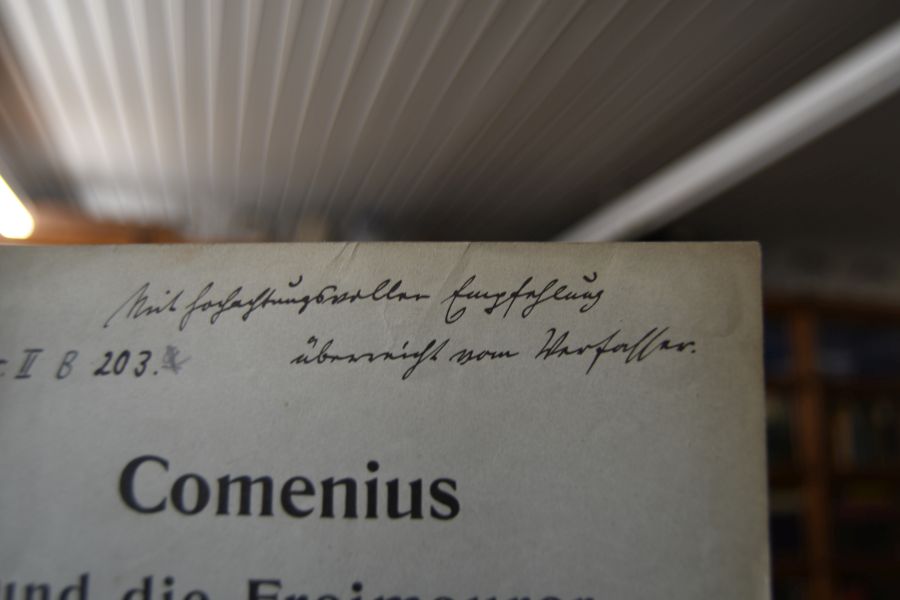 Mit hochachtungsvoller Empfehlung
überreicht vom Verfasser.
II B 203.
Comenius
und die Freimaurer